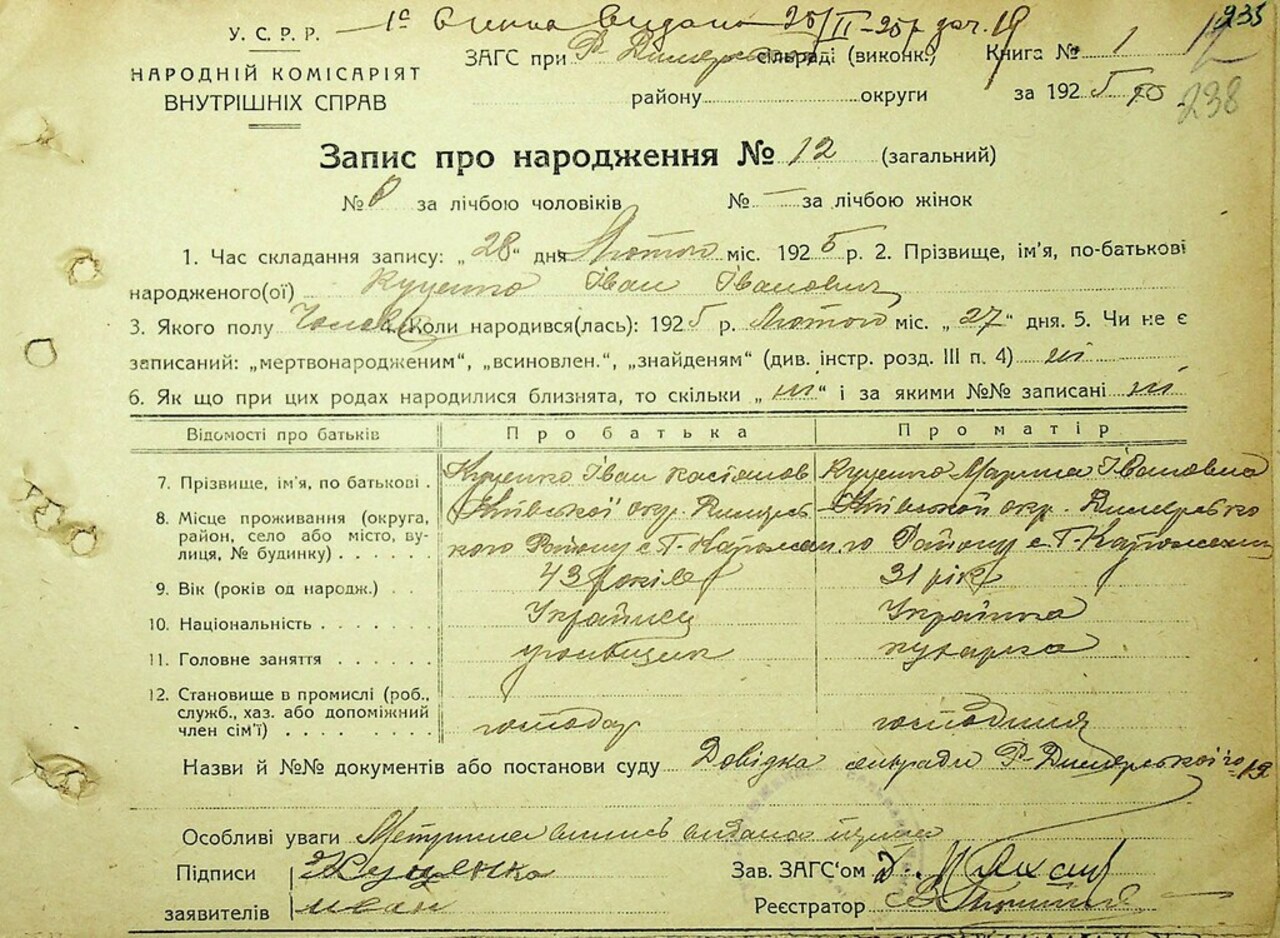 У. С. Р. Р.
НАРОДНІЙ КОМІСАРІЯТ
ВНУТРІШНІХ СПРАВ
видано 28/II-25р 235
ЗАГС при Р-Димерській сільраді (виконк.) Книга № 1 12
району округи за 1925 р. 238
Запис про народження № 12 (загальний)
№ за лічбою чоловіків № — за лічбою жінок
1. Час складання запису: „28“ дня Лютого міс. 1925 р. 2. Прізвище, ім'я, по-батькові
народженого(ої) Куценко Іван Іванович
3. Якого полу Чолов. (Коли народився(лась): 1925 р. Лютого міс. „27“ дня. 5. Чи не є
записаний: „мертвонародженим“, „всиновлен.“, „знайденям“ (див. інстр. розд. III п. 4) ні
6. Як що при цих родах народилися близнята, то скільки „ні“ і за якими №№ записані ні
Відомості про батьків Про батька Про матір
7. Прізвище, ім'я, по батькові . Куценко Іван Касіянов Куценко Марина Івановна
8. Місце проживання (округа, Київської окр. Димерсь Київської окр. Димерсько
район, село або місто, ву-
лиця, № будинку) . . . . . кого Району с. Т-Катюжан го Району с. Т-Катюжанки
9. Вік (років од народж.) . . 43 років 31 рік
10. Національність . . . . . . Українец Українка
11. Головне заняття . . . . . кухарка
12. Становище в промислі (роб.,
служб., хаз. або допоміжний
член сім'ї) . . . . . . . . господар господиня
Назви й №№ документів або постанови суду Довідка сільради Р-Димерської
Особливі уваги Метрична випись видана
Підписи Куценко Зав. ЗАГС'ом
заявителів Иван Реєстратор